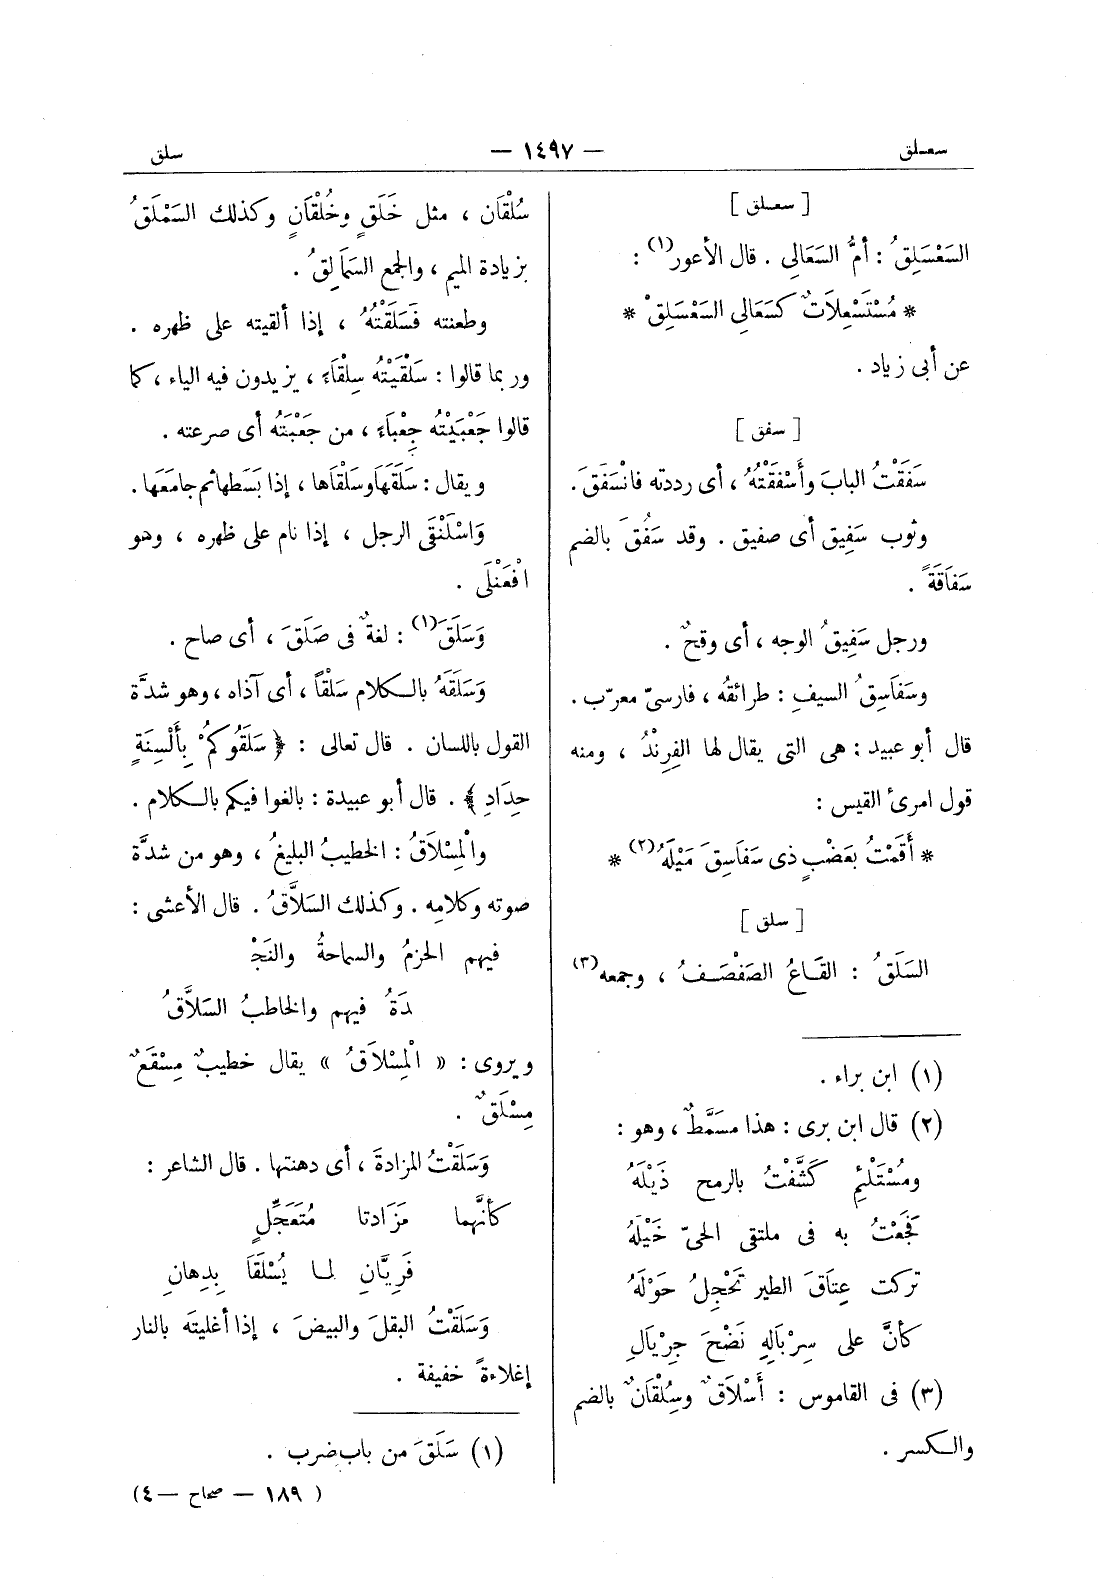 سعلق
— ١٤٩٧ —
سلق
[ سعلق ]
السَعْسَلِقُ : أمُّ السَعَالِى . قال الأعور(١) :
* مُسْتَسْعِلاتٌ كسَعَالِى السَعْسَلِقْ *
عن أبى زياد .
[ سفق ]
سَفَقْتُ البابَ وأَسْفَقْتُهُ ، أى رددته فانْسَفَقَ .
وثوب سَفِيق أى صفيق . وقد سَفُقَ بالضم
سَفَاقَةً .
ورجل سَفِيقُ الوجه ، أى وقحٌ .
وسَفَاسِقُ السيفِ : طرائقُه ، فارسىّ معرّب .
قال أبو عبيد : هى التى يقال لها الفِرِنْدُ ، ومنه
قول امرئ القيس :
* أَقَمْتُ بعَضْبٍ ذى سَفَاسِقَ مَيْلَهُ(٢) *
[ سلق ]
السَلَقُ : القَاعُ الصَفْصَفُ ، وجمعه(٣)
(١) ابن براء .
(٢) قال ابن برى : هذا مسَمَّطٌ ، وهو :
ومُسْتَلْئِمٍ كَشَّفْتُ بالرمح ذَيْلَهُ
فَجَعْتُ به فى ملتقى الحىّ خَيْلَهُ
تركت عِتَاقَ الطير تَحْجِلُ حَوْلَهُ
كأنَّ على سِرْبَالِهِ نَضْحَ جِرْيَالِ
(٣) فى القاموس : أَسْلَاقٌ وسُلْقَانٌ بالضم
والكسر .
سُلْقَان ، مثل خَلَقٍ وخُلْقَانٍ وكذلك السَمْلَقُ
بزيادة الميم ، والجمع السَمَالِقُ .
وطعنته فَسَلَقْتُهُ ، إذا ألقيته على ظهره .
وربما قالوا : سَلْقَيْتُه سِلْقَاءً ، يزيدون فيه الياء ، كما
قالوا جَعْبَيْتُه جِعْبَاءً ، من جَعَبْتُه أى صرعته .
ويقال : سَلَقَهَا وسَلْقَاها ، إذا بَسَطها ثم جامَعَها .
وَاسْلَنْقَى الرجل ، إذا نام على ظهره ، وهو
افْعَنْلَى .
وَسَلَقَ(١) : لغةٌ فى صَلَقَ ، أى صاح .
وَسَلَقَهُ بالكلام سَلْقاً ، أى آذاه ، وهو شدَّة
القول باللسان . قال تعالى : ﴿ سَلَقُوكُمْ بِأَلْسِنَةٍ
حِدَادٍ ﴾ . قال أبو عبيدة : بالغوا فيكم بالكلام .
والْمِسْلَاقُ : الخطيبُ البليغُ ، وهو من شدَّة
صوته وكلامِه . وكذلك السَلاَّقُ . قال الأعشى :
فيهم الحزمُ والسماحةُ والنَجْ
دَةُ فيهم والخاطبُ السَلاَّقُ
ويروى : « الْمِسْلَاقُ » يقال خطيبٌ مِسْقَعٌ
مِسْلَقٌ .
وَسَلَقْتُ المزادةَ ، أى دهنتها . قال الشاعر :
كأنَّهما مَزَادتا مُتَعَجِّلٍ
فَرِيَّانِ لما يُسْلَقَا بِدِهانِ
وَسَلَقْتُ البقلَ والبيضَ ، إذا أغليتَه بالنار
إغلاءةً خفيفة .
(١) سَلَقَ من باب ضرب .
( ١٨٩ — صحاح — ٤)